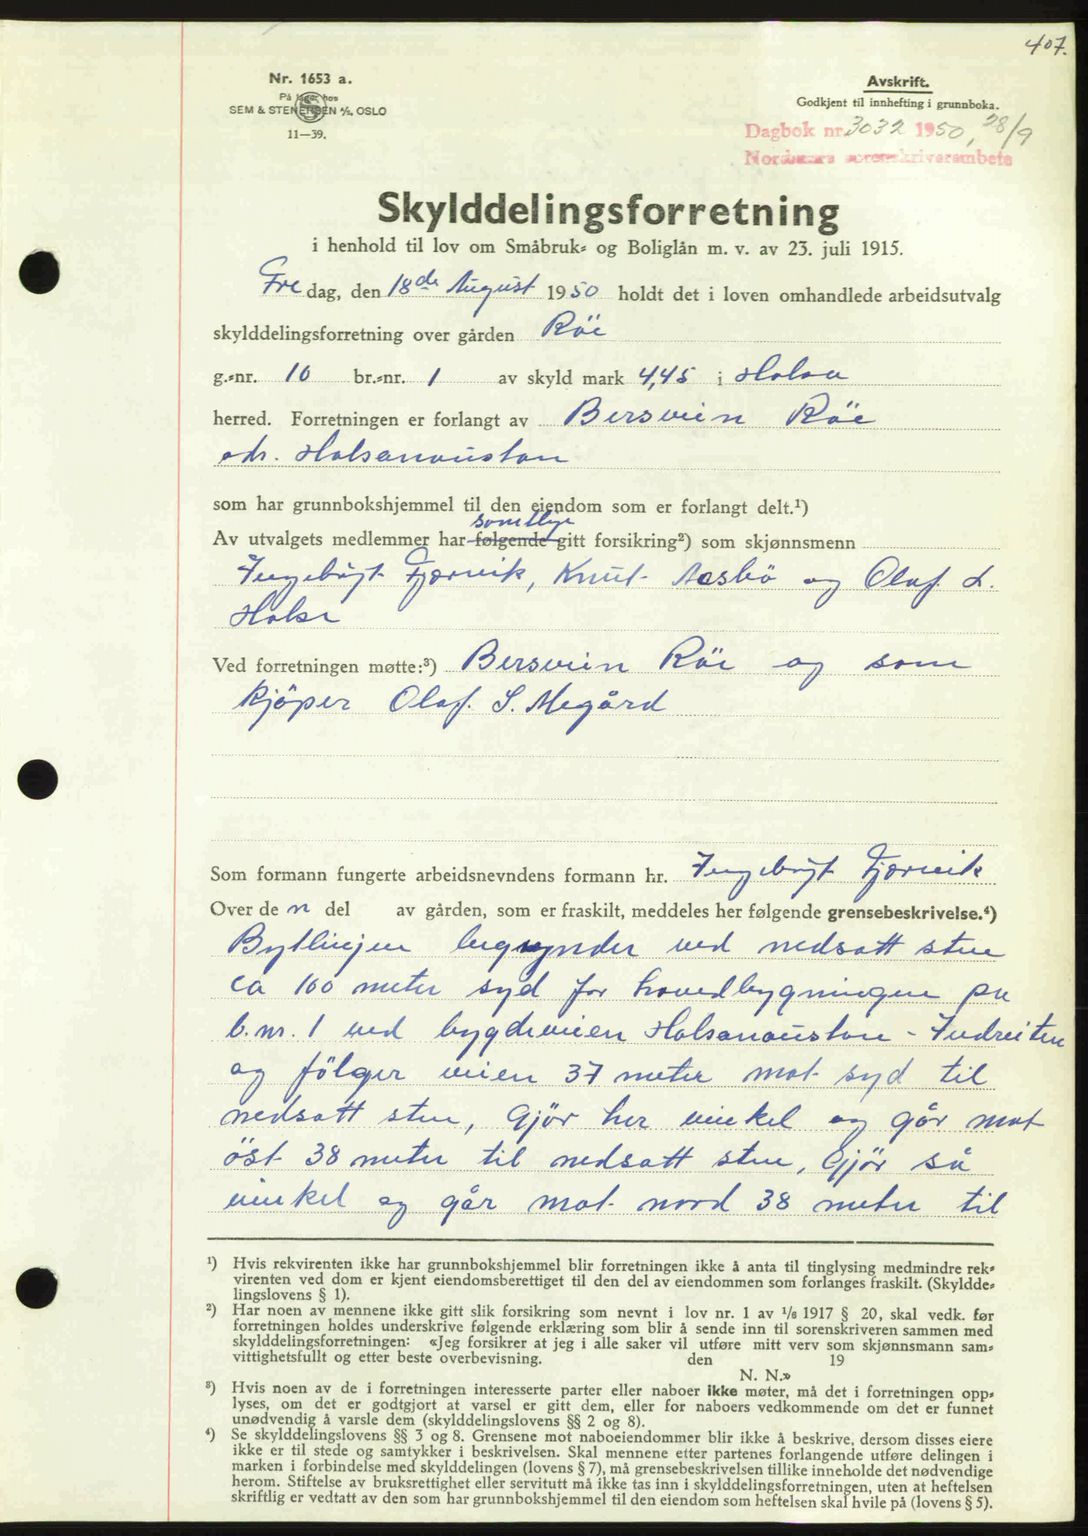 407.
Nr. 1653 a.
På lager hos
SEM & STENERSEN A/S, OSLO
11—39.
Avskrift.
Godkjent til innhefting i grunnboka.
Dagbok nr. 3032 1950, 28/9
Nordmøre sorenskriverembete
Skylddelingsforretning
i henhold til lov om Småbruk- og Boliglån m. v. av 23. juli 1915.
Fredag, den 18de August 1950 holdt det i loven omhandlede arbeidsutvalg
skylddelingsforretning over gården Röe
g.-nr. 10 br.-nr. 1 av skyld mark 4,45 i Halsa
herred. Forretningen er forlangt av Bersvein Röe
adr. Halsanaustan
som har grunnbokshjemmel til den eiendom som er forlangt delt.¹)
samtlige
Av utvalgets medlemmer har følgende gitt forsikring²) som skjønnsmenn
Ingebrigt Gjærvik, Knut Aasbö og Olaf L.
Halse
Ved forretningen møtte:³) Bersvein Röe og som
kjöper Olaf S. Megård
Som formann fungerte arbeidsnevndens formann hr. Ingebrigt Gjærvik
Over den del av gården, som er fraskilt, meddeles her følgende grensebeskrivelse.⁴)
Byttlinjen begynder ved nedsatt sten
ca 100 meter syd for hovedbygningen på
b.nr. 1 ved bygdeveien Halsanaustan - Indreiten
og fölger veien 37 meter mot syd til
nedsatt sten, Gjör her vinkel og går mot
öst 38 meter til nedsatt sten, Gjör så
vinkel og går mot nord 38 meter til
¹) Hvis rekvirenten ikke har grunnbokshjemmel blir forretningen ikke å anta til tinglysing medmindre rek-
virenten ved dom er kjent eiendomsberettiget til den del av eiendommen som forlanges fraskilt. (Skyldde-
lingslovens § 1).
²) Har noen av mennene ikke gitt slik forsikring som nevnt i lov nr. 1 av 1/6 1917 § 20, skal vedk. før
forretningen holdes underskrive følgende erklæring som blir å sende inn til sorenskriveren sammen med
skylddelingsforretningen: «Jeg forsikrer at jeg i alle saker vil utføre mitt verv som skjønnsmann sam-
vittighetsfullt og etter beste overbevisning. den 19
N. N.»
³) Hvis noen av de i forretningen interesserte parter eller naboer ikke møter, må det i forretningen opp-
lyses, om det er godtgjort at varsel er gitt dem, eller for naboers vedkommende om det er funnet
unødvendig å varsle dem (skylddelingslovens §§ 2 og 8).
⁴) Se skylddelingslovens §§ 3 og 8. Grensene mot naboeiendommer blir ikke å beskrive, dersom disses eiere
ikke er til stede og samtykker i beskrivelsen. Skal mennene etter partenes forlangende utføre delingen i
marken i forbindelse med skylddelingen (lovens § 7), må grensebeskrivelsen tillike inneholde det nødvendige
herom. Stiftelse av bruksrettighet eller servitutt må ikke tas inn i skylddelingsforretningen, uten at heftelsen
skriftlig er vedtatt av den som har grunnbokshjemmel til den eiendom som heftelsen skal hvile på (lovens § 5).